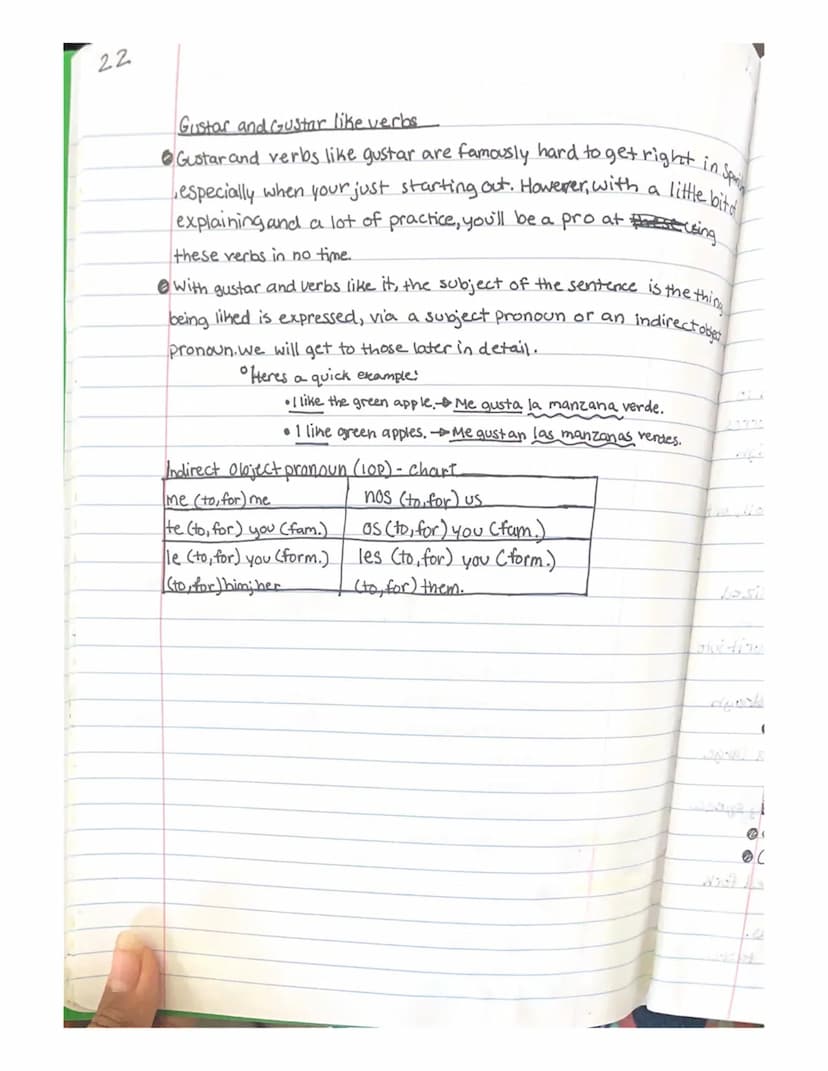 22
Gustar and Gustar like verbs
Gustar and verbs like gustar are famously hard to get right in
, especially when your just starting out. However, with a little bit of
explaining and a lot of practice, you'll be a pro at these using
these verbs in no time.
With gustar and verbs like it, the subject of the sentence is the thing
being liked is expressed, via a subject pronoun or an indirect object
pronoun. We will get to those later in detail.
Heres a quick example:
I like the green apple. → Me gusta la manzana verde.
I like green apples. → Me gustan las manzanas verdes.
Indirect Object pronoun (IOP) - chart
me (to, for) me nos (to, for) us
te (to, for) you (fam.) os (to, for) you (fam.)
le (to, for) you (form.) les (to, for) you (form.)
(to, for) him; her (to, for) them.